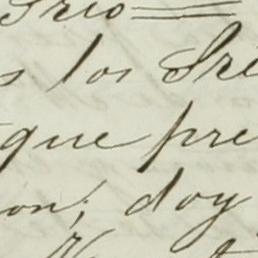 Srio
s los Sre
que pre
on, doy